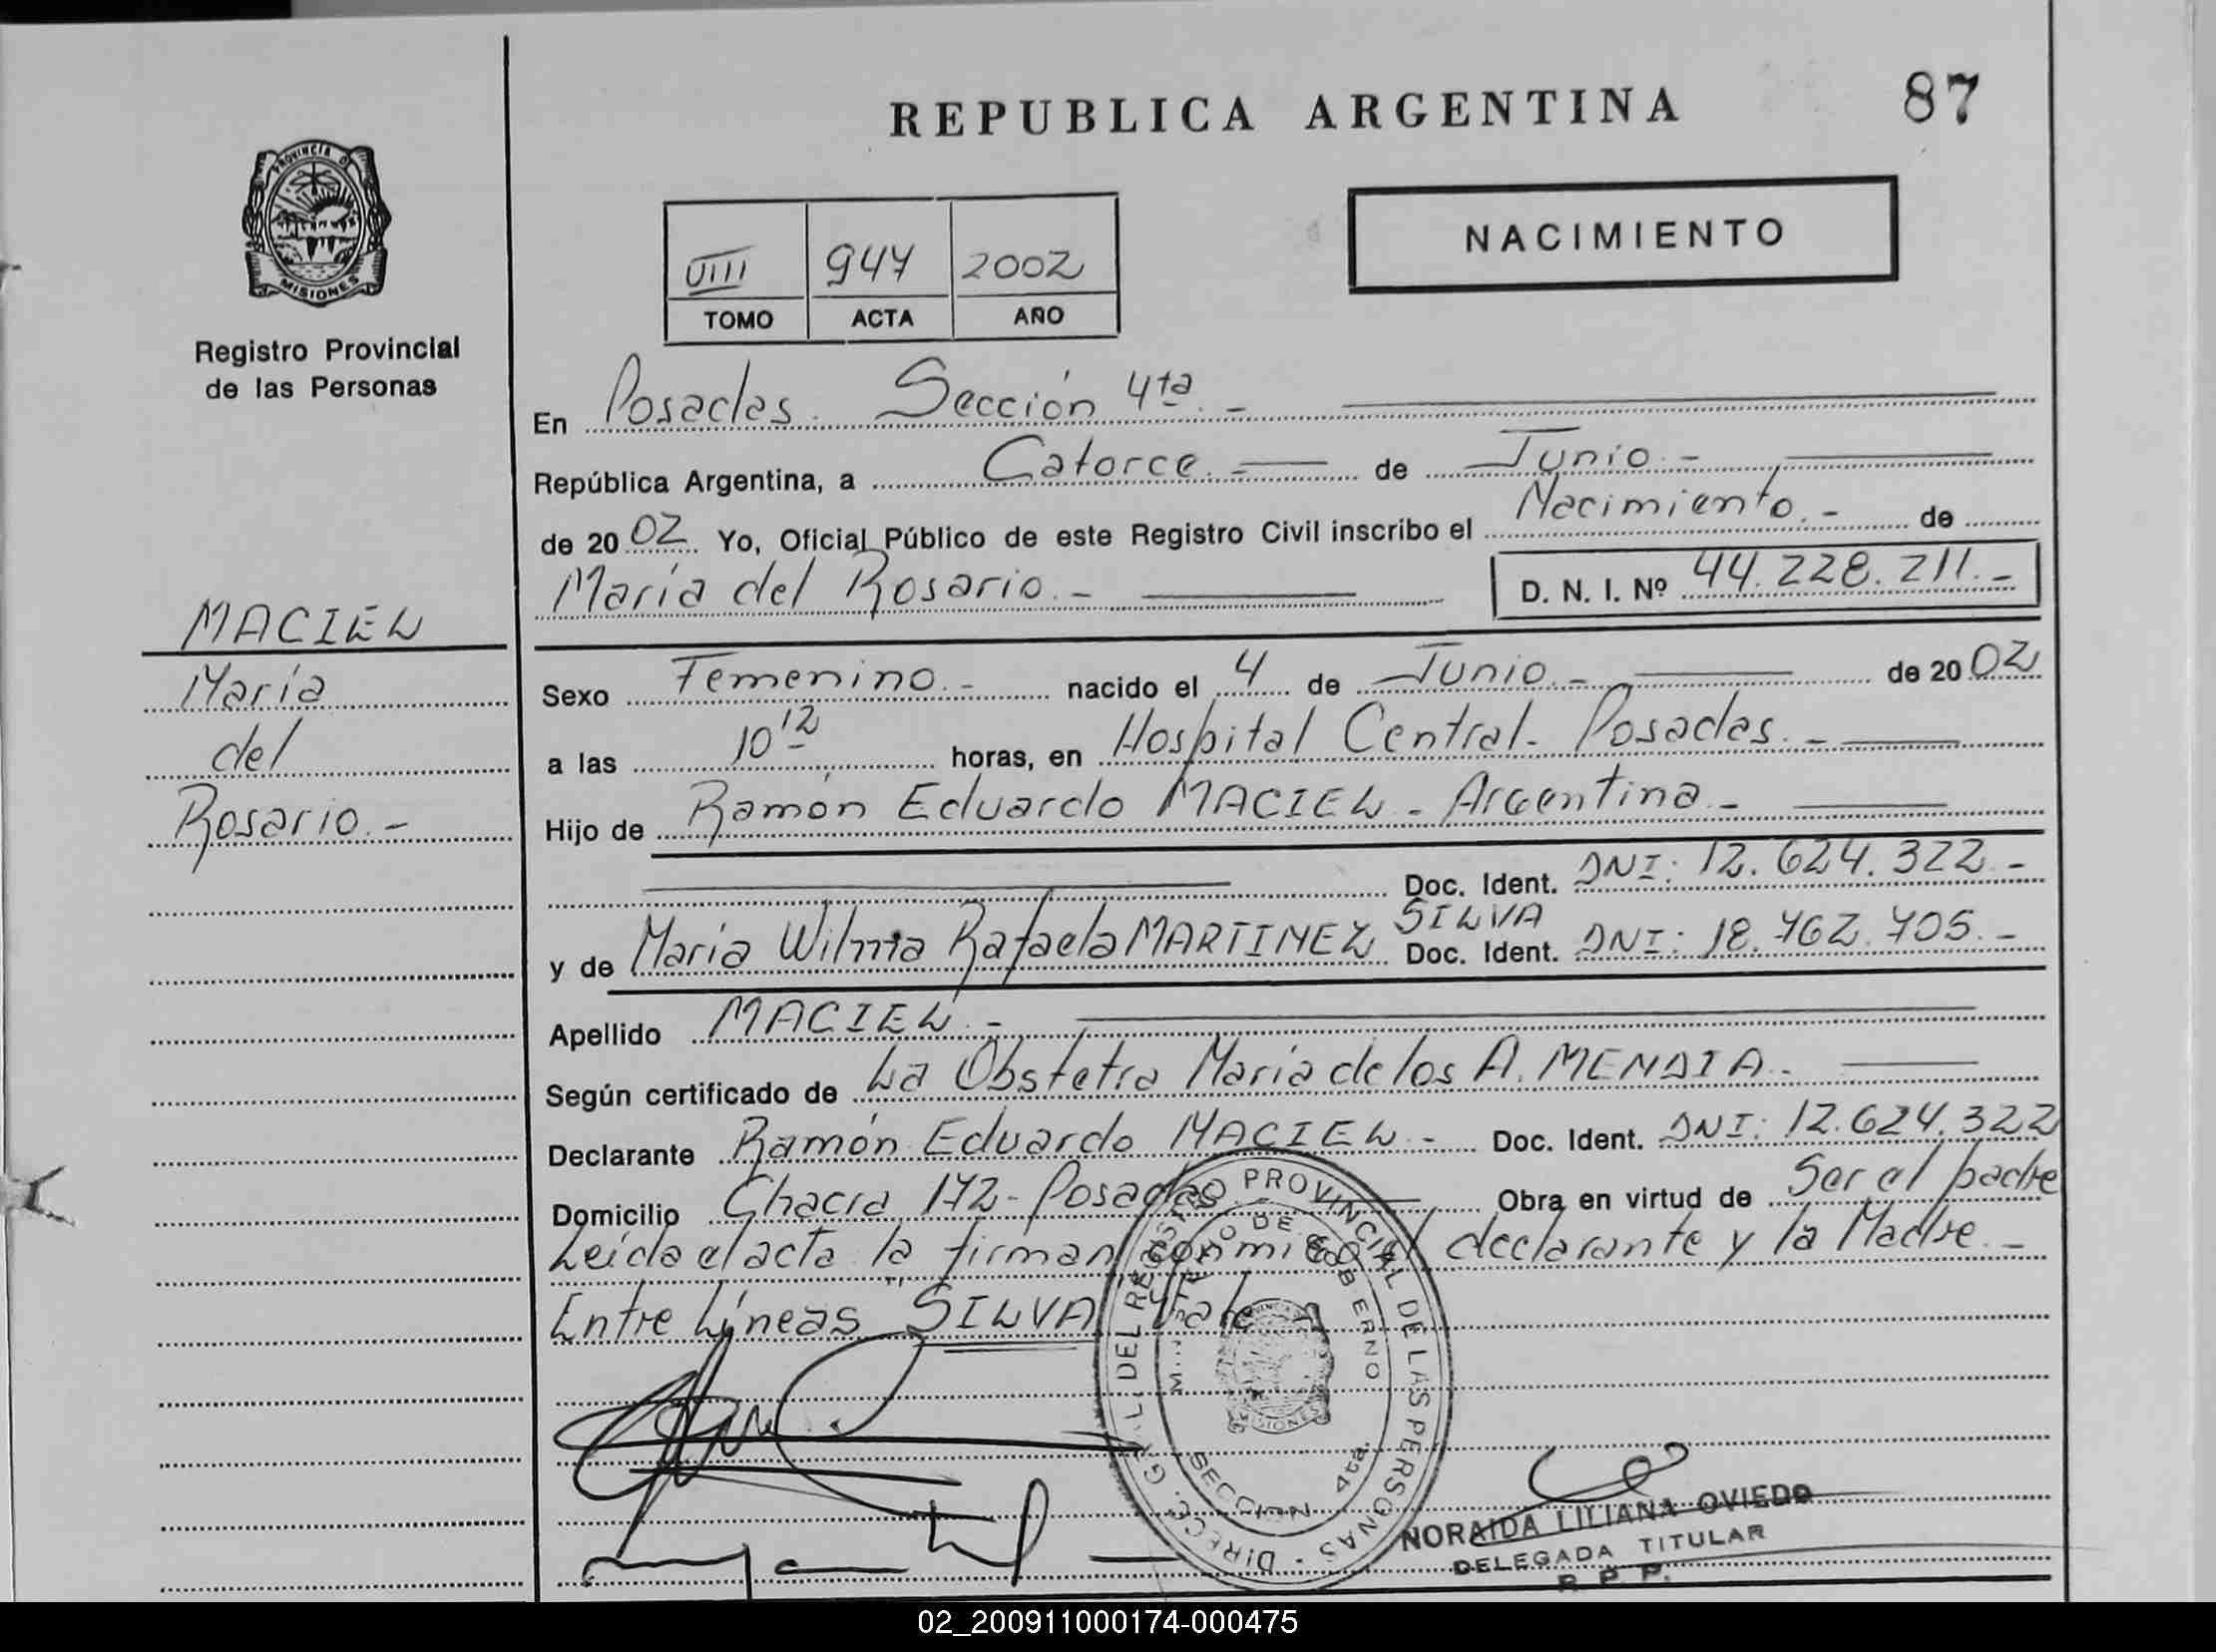 REPUBLICA ARGENTINA
87
PROVINCIA D
MISIONES
Registro Provincial
de las Personas
VIII 947 2002
TOMO ACTA AÑO
NACIMIENTO
En Posadas. Sección 4ta. -
República Argentina, a Catorce. - de Junio. -
de 2002 Yo, Oficial Público de este Registro Civil inscribo el Nacimiento. - de
María del Rosario. - D. N. I. Nº 44.228.211. -
MACIEL
María
del
Rosario. -
Sexo Femenino. - nacido el 4 de Junio. - de 2002
a las 10 12 horas, en Hospital Central - Posadas. -
Hijo de Ramón Eduardo MACIEL - Argentina. -
Doc. Ident. DNI: 12.624.322. -
SILVA
y de María Wilma Rafaela MARTINEZ Doc. Ident. DNI: 18.762.705. -
Apellido MACIEL. -
Según certificado de La Obstetra María de los A. MENDIA. -
Declarante Ramón Eduardo MACIEL. - Doc. Ident. DNI: 12.624.322
Domicilio Chacra 172 - Posadas Obra en virtud de Ser el padre
Leida el acta la firman conmigo el declarante y la Madre. -
Entre Líneas "SILVA" Vale
DIRECC. GRAL. DEL REGISTRO PROVINCIAL DE LAS PERSONAS -
MINISTERIO DE GOBIERNO
MISIONES
SECCION 4ta.
NORAIDA LILIANA OVIEDO
DELEGADA TITULAR
R. P. P.
02_200911000174-000475